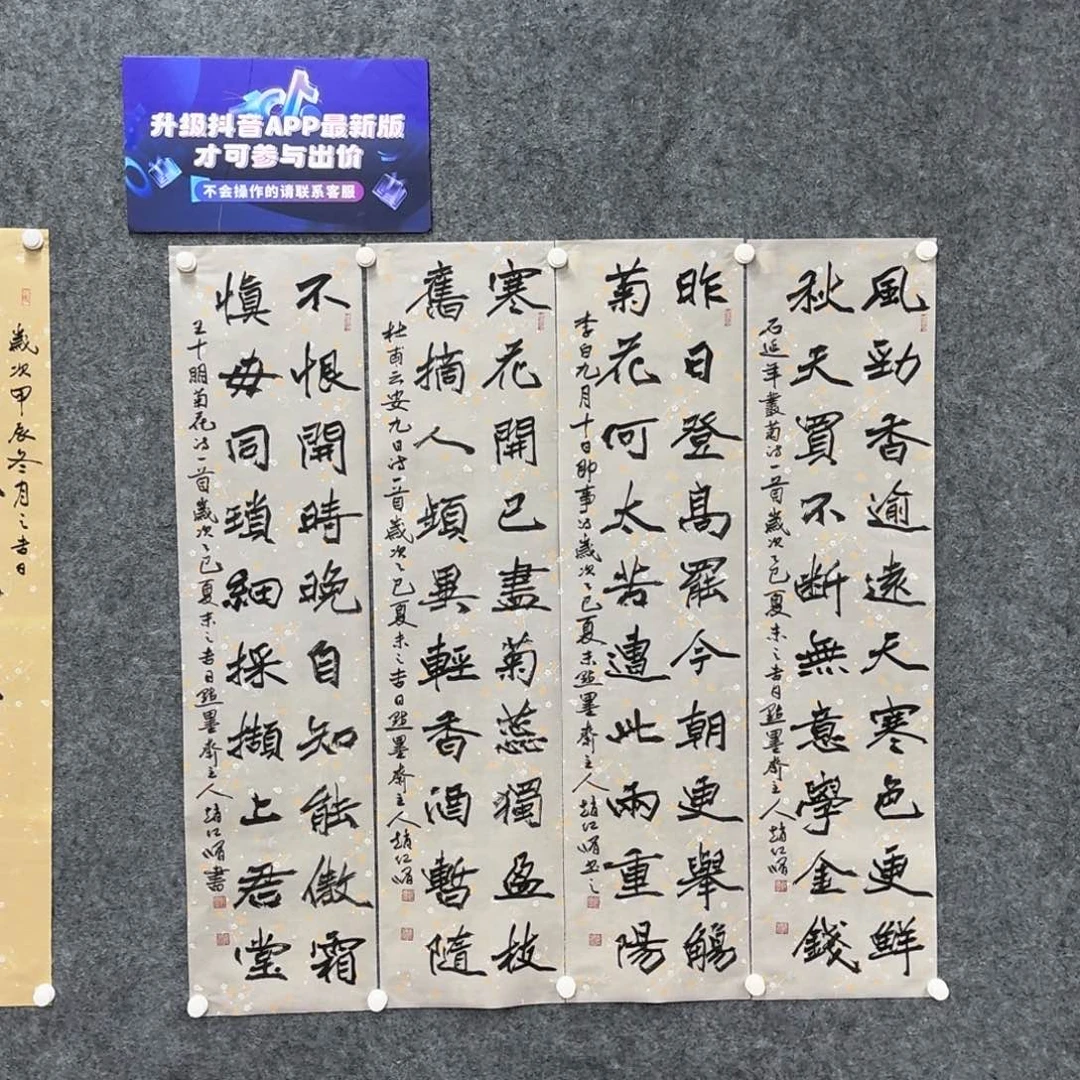 升级抖音APP最新版
才可参与出价
不会操作的请联系客服
風勁香逾遠天寒色更鮮
秋天買不斷無意學金錢
石延年叢菊詩一首歲次乙巳夏末之吉日點墨齋主人趙江
昨日登高罷今朝更舉觴
菊花何太苦遭此兩重陽
李白九月十日即事詩歲次乙巳夏末點墨齋主人趙江
寒花開已盡菊蕊獨盈枝
舊摘人頻異輕香酒暫隨
杜甫云安九日詩一首歲次乙巳夏末之吉日點墨齋主人趙江
不恨開時晚自知能傲霜
慎毋同瑣細採擷上君堂
王十朋菊花詩一首歲次乙巳夏末之吉日點墨齋主人趙江書
歲次甲辰冬月之吉日